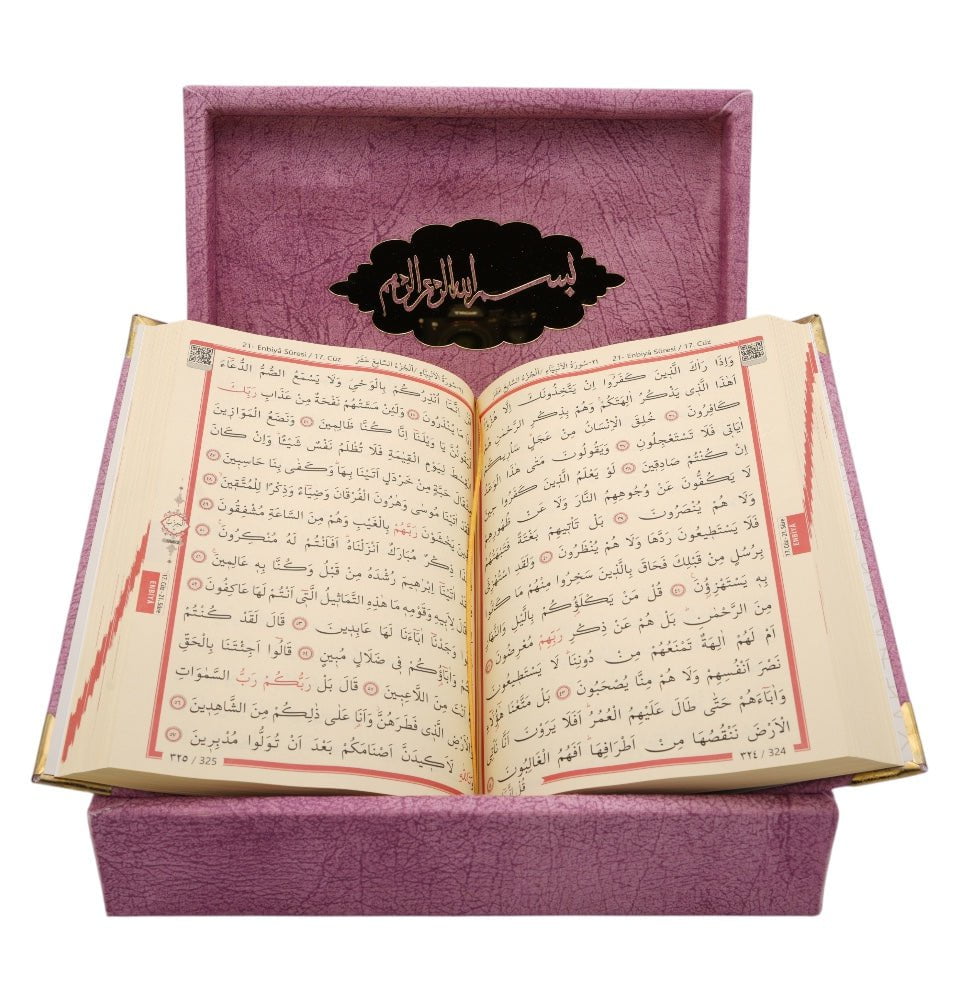 بسم الله الرحمن الرحيم
٢١-سُورَةُ الْاَنْبِيَاءِ / اَلْجُزْءُ السَّابِعَ عَشَرَ
21- Enbiyâ Sûresi / 17. Cüz
وَاِذَا رَاٰكَ الَّذ۪ينَ كَفَرُٓوا اِنْ يَتَّخِذُونَكَ اِلَّا هُزُوًاۜ
اَهٰذَا الَّذ۪ي يَذْكُرُ اٰلِهَتَكُمْۚ وَهُمْ بِذِكْرِ الرَّحْمٰنِ هُمْ
كَافِرُونَ ٣٦ خُلِقَ الْاِنْسَانُ مِنْ عَجَلٍۜ سَاُر۪يكُمْ
اٰيَات۪ي فَلَا تَسْتَعْجِلُونِ ٣٧ وَيَقُولُونَ مَتٰى هٰذَا الْوَعْدُ
اِنْ كُنْتُمْ صَادِق۪ينَ ٣٨ لَوْ يَعْلَمُ الَّذ۪ينَ كَفَرُوا ح۪ينَ
لَا يَكُفُّونَ عَنْ وُجُوهِهِمُ النَّارَ وَلَا عَنْ ظُهُورِهِمْ
وَلَا هُمْ يُنْصَرُونَ ٣٩ بَلْ تَأْت۪يهِمْ بَغْتَةً فَتَبْهَتُهُمْ
فَلَا يَسْتَط۪يعُونَ رَدَّهَا وَلَا هُمْ يُنْظَرُونَ ٤٠ وَلَقَدِ اسْتُهْزِئَ
بِرُسُلٍ مِنْ قَبْلِكَ فَحَاقَ بِالَّذ۪ينَ سَخِرُوا مِنْهُمْ مَا كَانُوا
بِه۪ يَسْتَهْزِؤُ۫نَ۟ ٤١ قُلْ مَنْ يَكْلَؤُكُمْ بِالَّيْلِ وَالنَّهَارِ
مِنَ الرَّحْمٰنِۜ بَلْ هُمْ عَنْ ذِكْرِ رَبِّهِمْ مُعْرِضُونَ ٤٢
اَمْ لَهُمْ اٰلِهَةٌ تَمْنَعُهُمْ مِنْ دُونِنَاۜ لَا يَسْتَط۪يعُونَ
نَصْرَ اَنْفُسِهِمْ وَلَا هُمْ مِنَّا يُصْحَبُونَ ٤٣ بَلْ مَتَّعْنَا هٰٓؤُ۬لَٓاءِ
وَاٰبَٓاءَهُمْ حَتّٰى طَالَ عَلَيْهِمُ الْعُمُرُۜ اَفَلَا يَرَوْنَ اَنَّا نَأْتِي
الْاَرْضَ نَنْقُصُهَا مِنْ اَطْرَافِهَاۜ اَفَهُمُ الْغَالِبُونَ ٤٤
قُلْ اِنَّمَا
٣٢٤ / 324
17.Cüz -21.Sûre
ENBİYÂ
٢١-سُورَةُ الْاَنْبِيَاءِ / اَلْجُزْءُ السَّابِعَ عَشَرَ
21- Enbiyâ Sûresi / 17. Cüz
اِنَّمَٓا اُنْذِرُكُمْ بِالْوَحْيِۘ وَلَا يَسْمَعُ الصُّمُّ الدُّعَٓاءَ
مَا يُنْذَرُونَ ٤٥ وَلَئِنْ مَسَّتْهُمْ نَفْحَةٌ مِنْ عَذَابِ رَبِّكَ
يَا وَيْلَنَٓا اِنَّا كُنَّا ظَالِم۪ينَ ٤٦ وَنَضَعُ الْمَوَاز۪ينَ
لِيَوْمِ الْقِيٰمَةِ فَلَا تُظْلَمُ نَفْسٌ شَيْـًٔاۜ وَاِنْ كَانَ
حَبَّةٍ مِنْ خَرْدَلٍ اَتَيْنَا بِهَاۜ وَكَفٰى بِنَا حَاسِب۪ينَ ٤٧
اٰتَيْنَا مُوسٰى وَهٰرُونَ الْفُرْقَانَ وَضِيَٓاءً وَذِكْرًا لِلْمُتَّق۪ينَۙ ٤٨
يَخْشَوْنَ رَبَّهُمْ بِالْغَيْبِ وَهُمْ مِنَ السَّاعَةِ مُشْفِقُونَ ٤٩
ذِكْرٌ مُبَارَكٌ اَنْزَلْنَاهُۜ اَفَاَنْتُمْ لَهُ مُنْكِرُونَ۟ ٥٠
اٰتَيْنَٓا اِبْرٰه۪يمَ رُشْدَهُ مِنْ قَبْلُ وَكُنَّا بِه۪ عَالِم۪ينَۚ ٥١
قَالَ لِاَب۪يهِ وَقَوْمِه۪ مَا هٰذِهِ التَّمَاث۪يلُ الَّت۪ٓي اَنْتُمْ لَهَا عَاكِفُونَ ٥٢
وَجَدْنَٓا اٰبَٓاءَنَا لَهَا عَابِد۪ينَ ٥٣ قَالَ لَقَدْ كُنْتُمْ
وَاٰبَٓاؤُ۬كُمْ ف۪ي ضَلَالٍ مُب۪ينٍ ٥٤ قَالُٓوا اَجِئْتَنَا بِالْحَقِّ
اَنْتَ مِنَ اللَّاعِب۪ينَ ٥٥ قَالَ بَلْ رَبُّكُمْ رَبُّ السَّمٰوَاتِ
وَالْاَرْضِ الَّذ۪ي فَطَرَهُنَّۘ وَاَنَا۬ عَلٰى ذٰلِكُمْ مِنَ الشَّاهِد۪ينَ ٥٦
وَتَاللّٰهِ لَاَك۪يدَنَّ اَصْنَامَكُمْ بَعْدَ اَنْ تُوَلُّوا مُدْبِر۪ينَ ٥٧
٣٢٥ / 325
17.Cüz -21.Sûre
ENBİYÂ